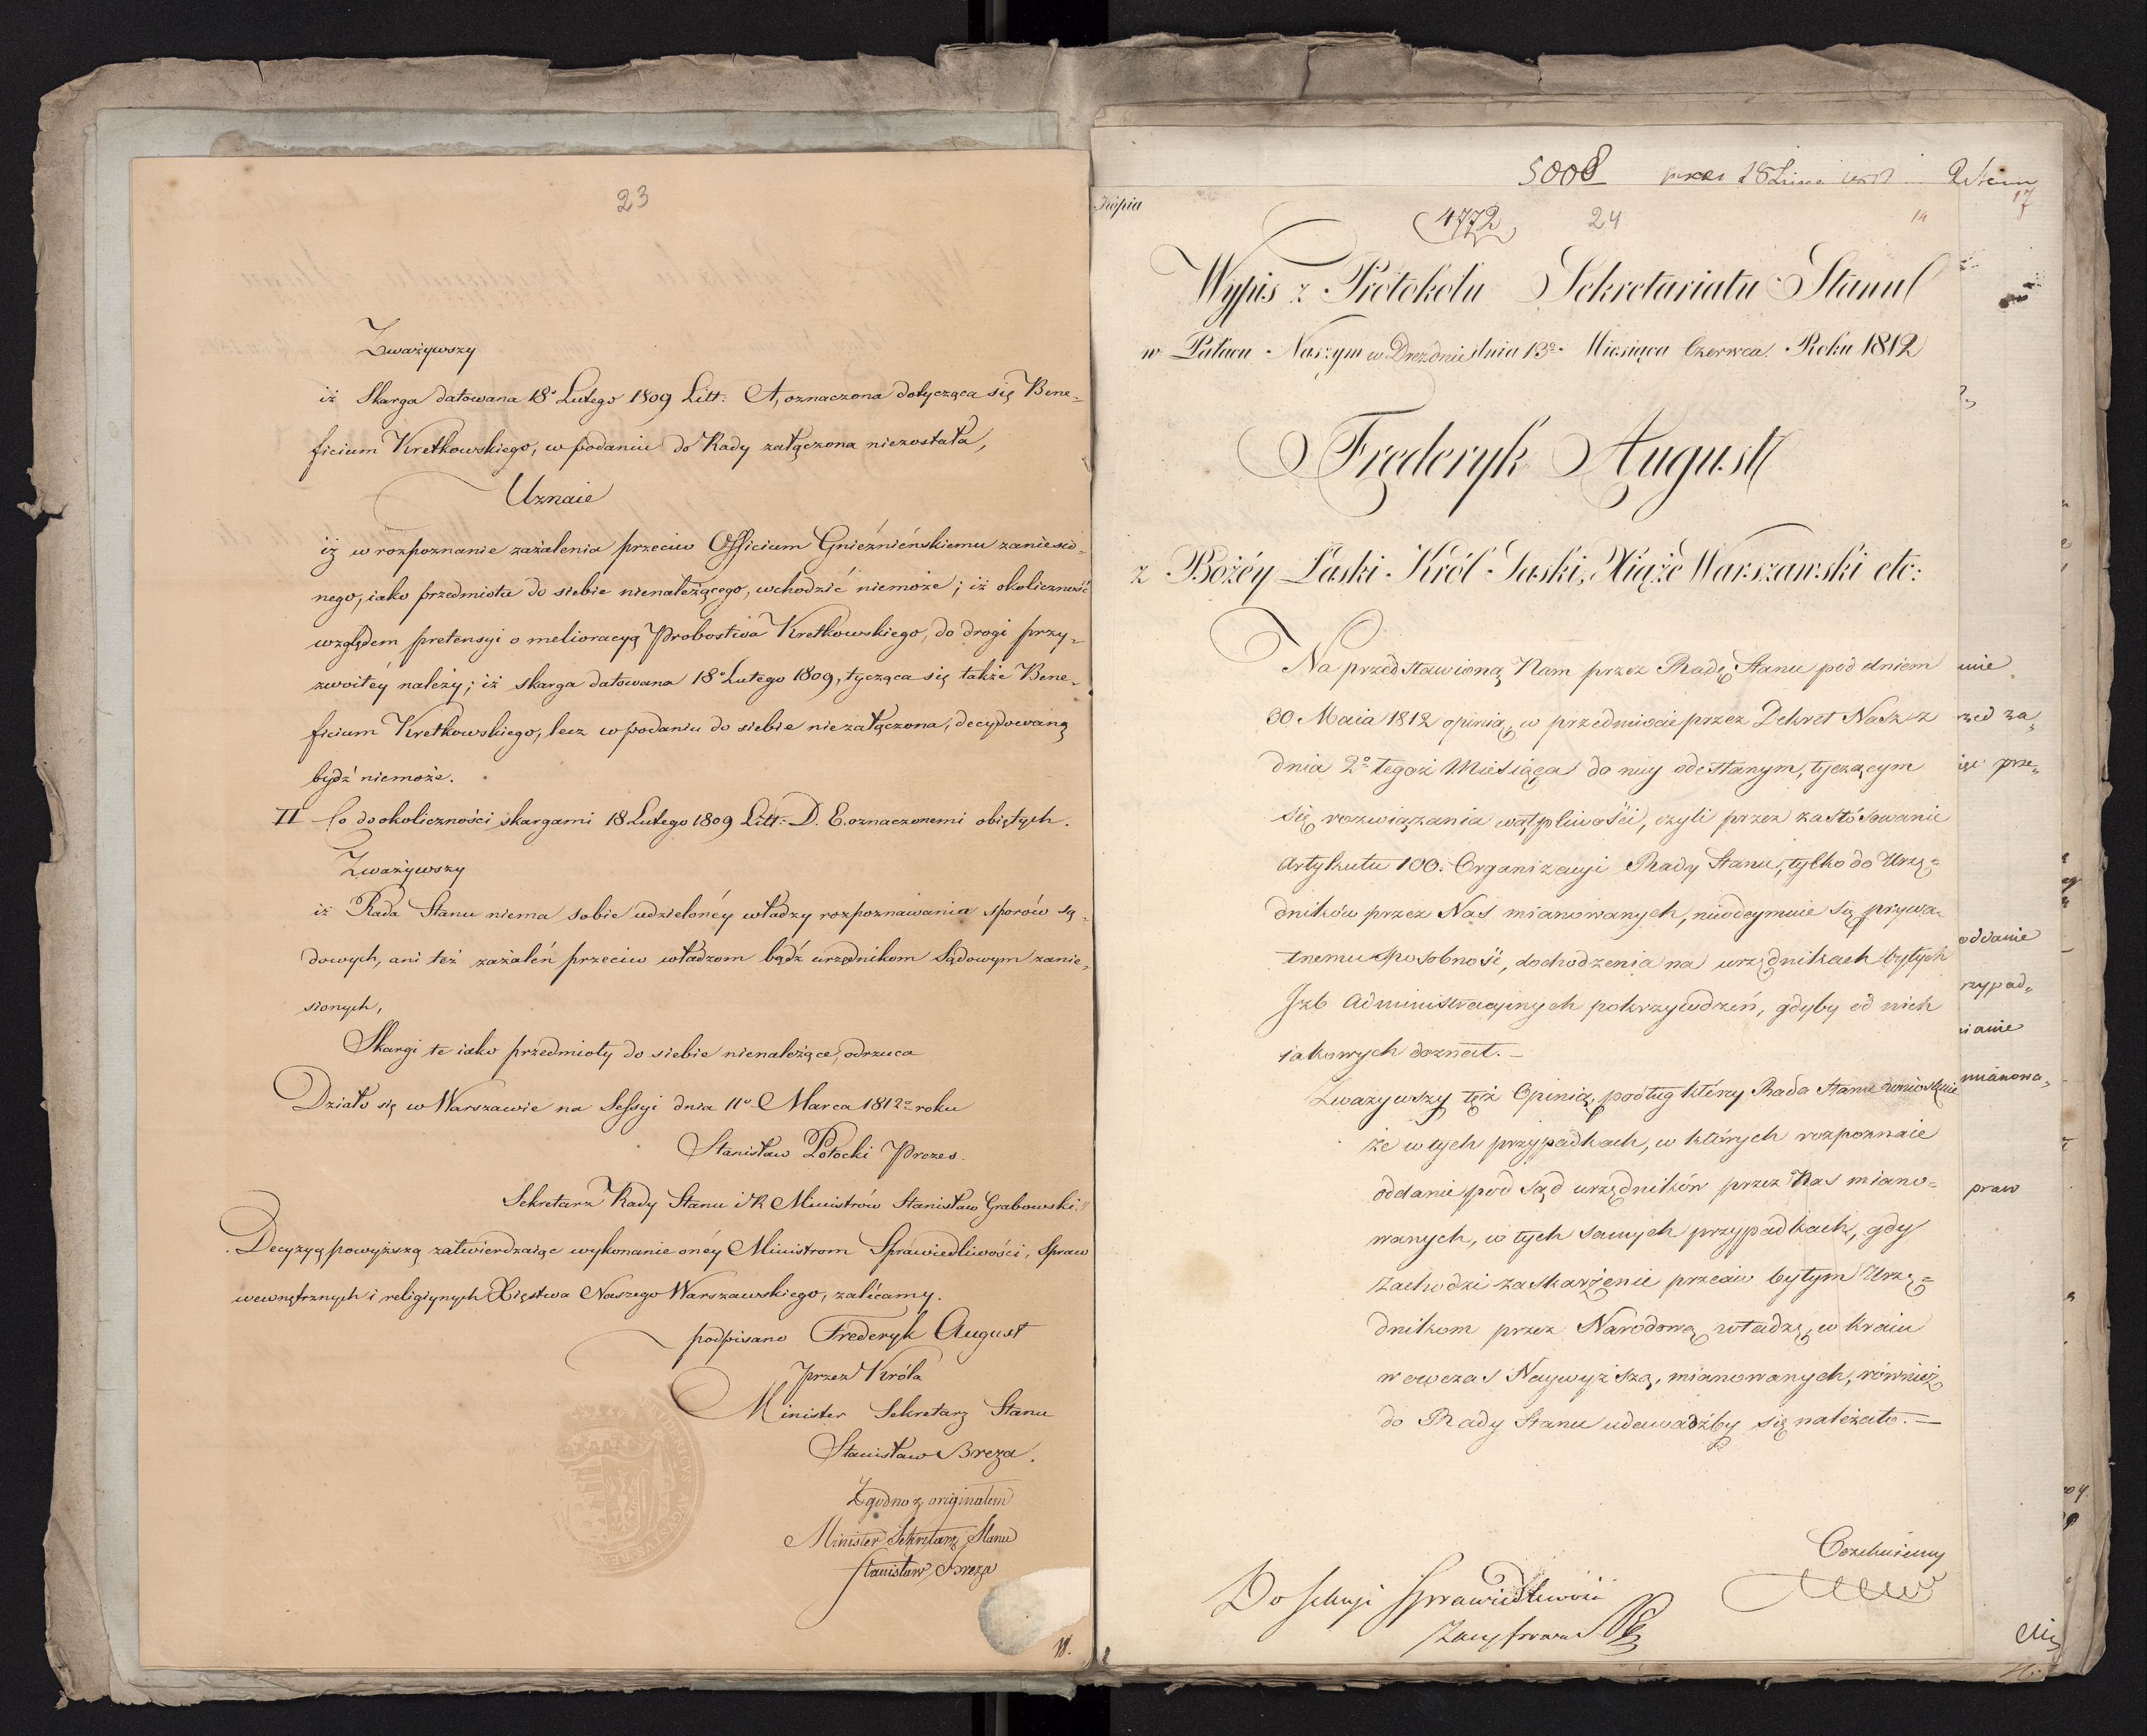 23
Zważywszy
iż Skarga datowana 18º Lutego 1809 Litt: A, oznaczona dotycząca się Bene-
ficium Kretkowskiego, w podaniu do Rady załączona niezostała,
Uznaie
iż w rozpoznanie zażalenia przeciw Officium Gnieźnieńskiemu zaniesio-
nego, iako przedmiotu do siebie nienależącego, wchodzić niemoże; iż okoliczność
względem pretensyi o melioracyą Probostwa Kretkowskiego, do drogi przy-
zwoitéy należy; iż skarga datowana 18º Lutego 1809, tycząca się także Bene-
ficium Kretkowskiego, lecz w podaniu do siebie niezałączona, decydowaną
bydź niemoże.
II Co do okoliczności skargami 18 Lutego 1809 Litt: D. E. oznaczonemi obiętych.
Zważywszy
iż Rada Stanu niema sobie udzielonéy władzy rozpoznawania sporów są-
dowych, ani też zażaleń przeciw władzom bądź urzędnikom Sądowym zanie-
sionych,
Skargi te iako przedmioty do siebie nienależące, odrzuca
Działo się w Warszawie na Sessyi dnia 11º Marca 1812º roku
Stanisław Potocki Prezes.
Sekretarz Rady Stanu i R Ministrów Stanisław Grabowski."
Decyzyą powyższą zatwierdzaiąc wykonanie onéy Ministrom Sprawiedliwości, Spraw
wewnętrznych i religiynych Xięstwa Naszego Warszawskiego, zalécamy.
podpisano Frederyk August
przez Króla
Minister Sekretarz Stanu
Stanisław Breza.
Zgodno z originałem
Minister Sekretarz Stanu
Stanisław Breza
18.
5008
Kopia
4772 24 14 17
Wypis z Protokołu Sekretariatu Stanu
w Pałacu Naszym w Dreźdnie dnia 13º Miesiąca Czerwca Roku 1812
Frederyk August
z Bożéy Łaski Król Saski, Xiąże Warszawski etc:
Na przedstawioną Nam przez Radę Stanu pod dniem
30 Maia 1812 opinią, w przedmiocie przez Dekret Nasz z
dnia 2º tegoż Miesiąca do niey odesłanym, tyczącym
się rozwiązania wątpliwości, czyli przez zastósowanie
Artykułu 100. Organizacyi Rady Stanu, tylko do Urzę-
dników przez Nas mianowanych, nieodeymuie się prywa-
tnemu sposobność, dochodzenia na urzędnikach byłych
Izb Administracyinych pokrzywdzeń, gdyby od nich
iakowych doznał. —
Zważywszy też Opinią, podług któréy Rada Stanu wnioskuie
że w tych przypadkach, w których rozpoznaie
oddanie pod Sąd urzędników przez Nas miano-
wanych, w tych samych przypadkach, gdy
zachodzi zaskarżenie przeciw byłym Urzę-
dnikom przez Narodową władzę, w kraiu
wówczas Naywyższą, mianowanych, również
do Rady Stanu udawaćby się należało. —
Do Sekcyi Sprawiedliwości
nie
rzed za-
prze-
oddanie
rzypad-
nianie
mianowa-
praw